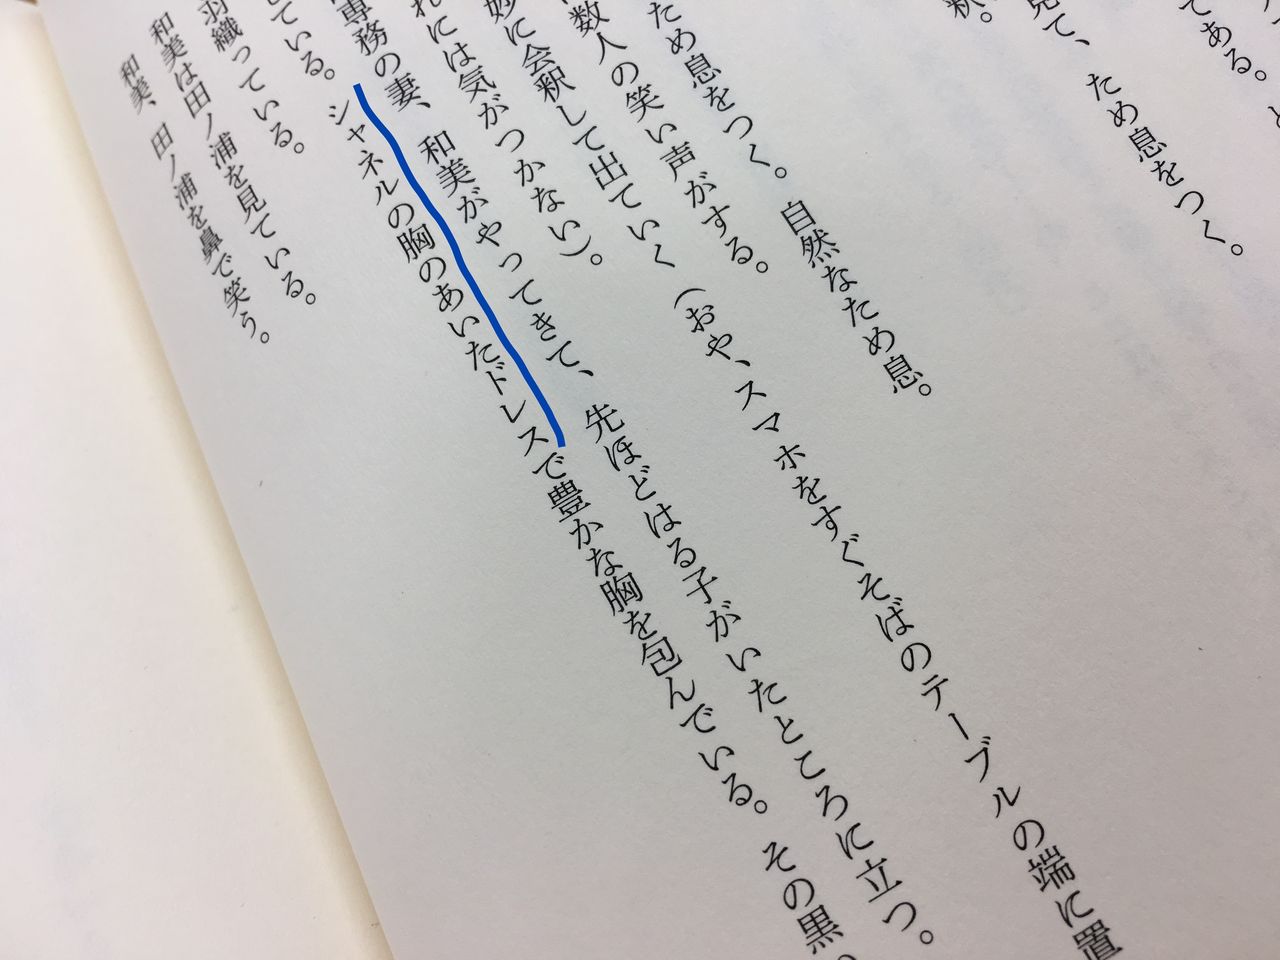 てある。
見て、ため息をつく。
釈。
ため息をつく。自然なため息。
数人の笑い声がする。
妙に会釈して出ていく(おや、スマホをすぐそばのテーブルの端に置
れには気がつかない)。
専務の妻、和美がやってきて、先ほどはる子がいたところに立つ。
している。シャネルの胸のあいたドレスで豊かな胸を包んでいる。その黒
羽織っている。
和美は田ノ浦を見ている。
和美、田ノ浦を鼻で笑う。